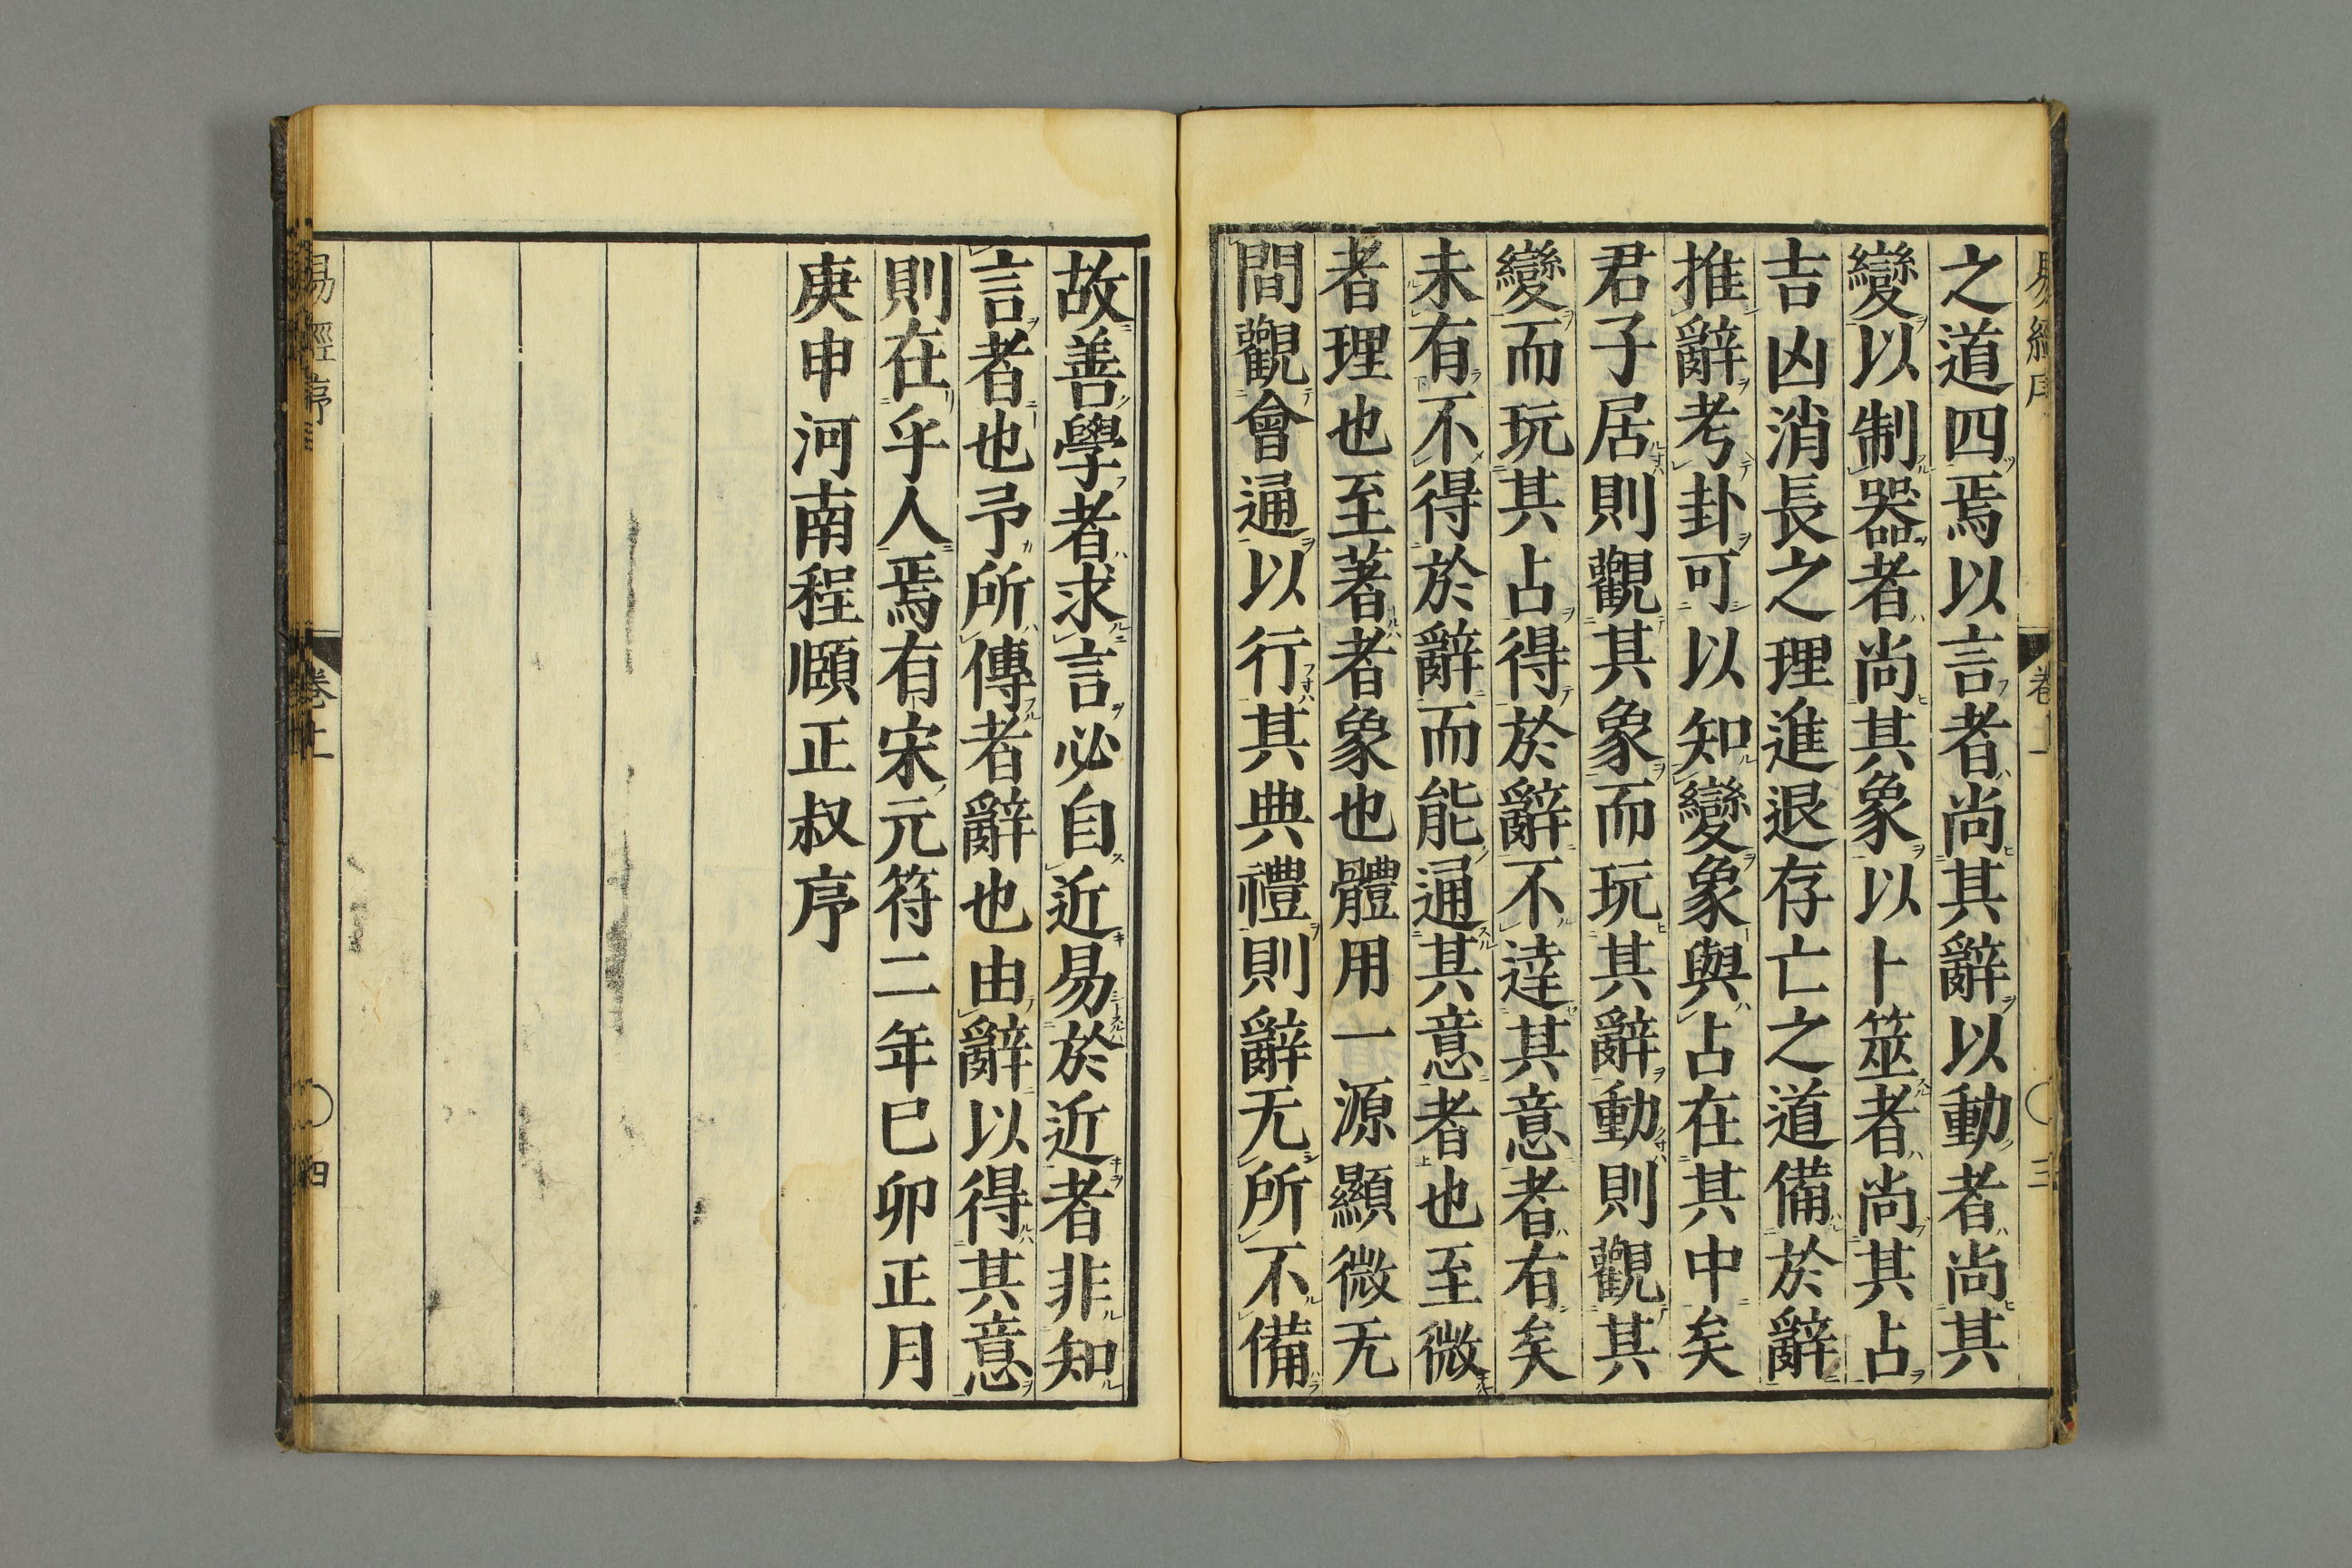 之道四焉以言者尚其辭以動者尚其
變以制器者尚其象以卜筮者尚其占
吉凶消長之理進退存亡之道備於辭
推辭考卦可以知變象與占在其中矣
君子居則觀其象而玩其辭動則觀其
變而玩其占得於辭不達其意者有矣
未有不得於辭而能通其意者也至微
者理也至著者象也體用一源顯微无
間觀會通以行其典禮則辭无所不備
故善學者求言必自近易於近者非知
言者也予所傳者辭也由辭以得其意
則在乎人焉有宋元符二年巳卯正月
庚申河南程頤正叔序
易經序
卷上
四